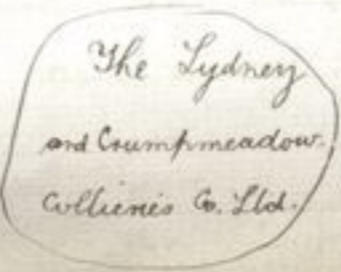 The Lydney
and Crumpmeadow.
Collieries Co. Ltd.